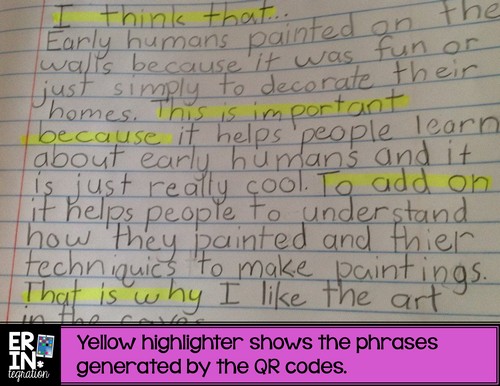 I think that...
Early humans painted on the
walls because it was fun or
just simply to decorate their
homes. This is important
because it helps people learn
about early humans and it
is just really cool. To add on
it helps people to understand
how they painted and thier
techniquics to make paintings.
That is why I like the art
in the caves
ER
IN
tegration
Yellow highlighter shows the phrases
generated by the QR codes.